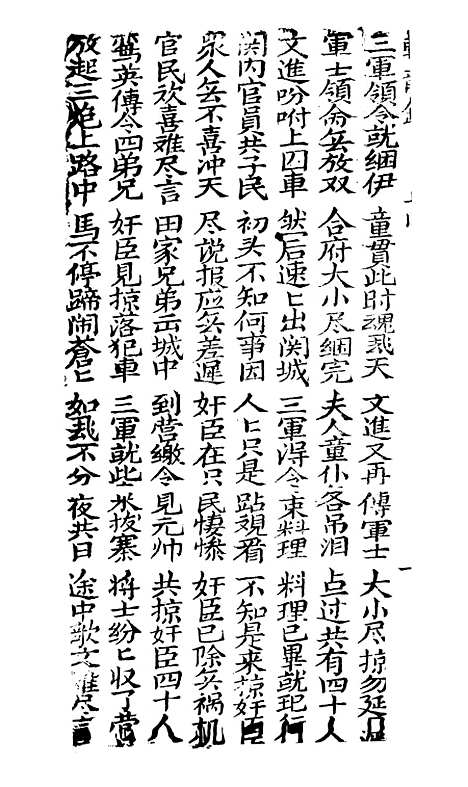 三軍領令就綑伊 童貫此时魂飛天 文進又再傳軍士 大小尽掠勿延遲
軍士領命無放双 合府大小尽綑完 夫人童仆各吊泪 点过共有四十人
文進吩咐上囚車 然后速匕出関城 三軍淂令来料理 料理已畢就起行
関内官員共子民 初头不知何事因 人匕只是跕覌看 不知是来掠奸臣
众人無不喜冲天 尽说报应無差遲 奸臣在只民悽慘 奸臣已除無祸机
官民欢喜难尽言 田家兄弟出城中 到营繳令見元帅 共掠奸臣四十人
鸞英傳令四弟兄 奸臣見掠落犯車 三軍就此来拔寨 將士紛匕収了营
放起三炮上路中 馬不停蹄闹蒼匕 如飛不分夜共日 途中歌文难尽言